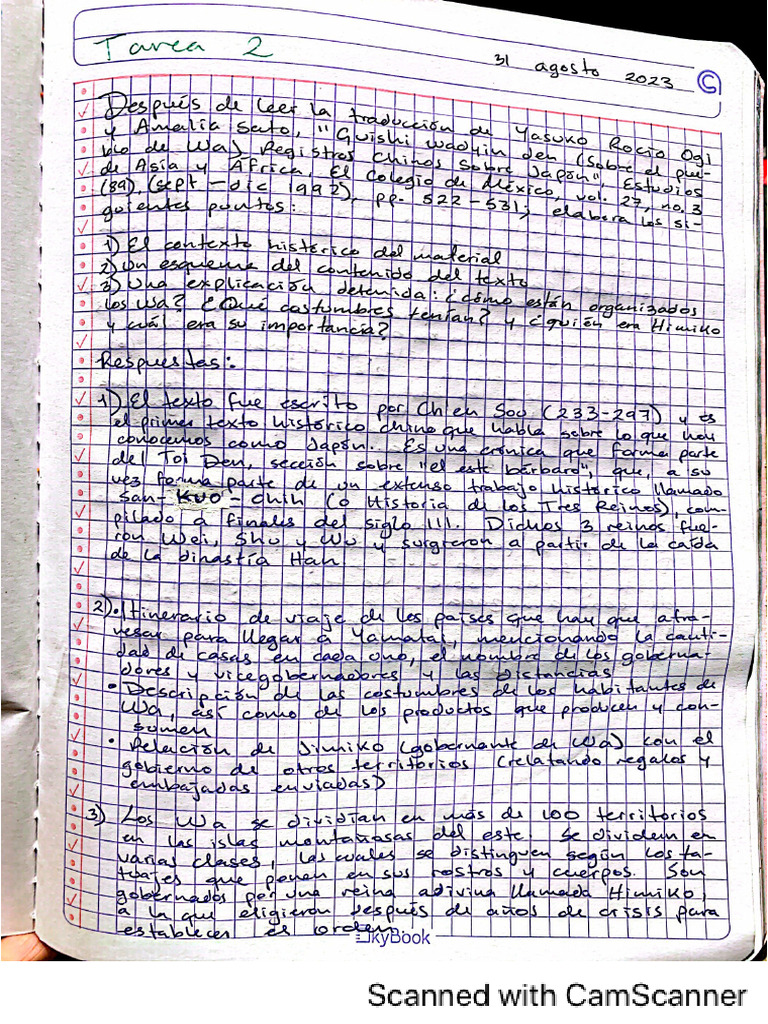 Tarea 2
31 agosto 2023
C
Después de leer la traducción de Yasuko Rocío Ogi
y Amalia Sato, "Guishi wadhin den (Sobre el pue-
blo de Wa) Registros Chinos sobre Japón", Estudios
de Asia y África, El Colegio de México, vol. 27, no. 3
(89), (sept-dic 1992), pp. 522-531; elabora los si-
guientes puntos:
1) El contexto histórico del material
2) Un esquema del contenido del texto
3) Una explicación detenida: ¿cómo están organizados
los Wa? ¿Qué costumbres tenían? y ¿quién era Himiko
y cuál era su importancia?
Respuestas:
1) El texto fue escrito por Ch'en Sou (233-297) y es
el primer texto histórico chino que habla sobre lo que hoy
conocemos como Japón. Es una crónica que forma parte
del Toi Den, sección sobre "el este bárbaro", que, a su
vez forma parte de un extenso trabajo histórico llamado
San-KUO-chih (o Historia de los Tres Reinos), com-
pilado a finales del siglo III. Dichos 3 reinos fue-
ron Wei, Shu y Wu y surgieron a partir de la caída
de la dinastía Han
2) • Itinerario de viaje de los países que hay que atra-
vesar para llegar a Yamatai, mencionando la canti-
dad di casas en cada uno, el nombre de los goberna-
dores y vicegobernadores y las distancias
• Descripción de las costumbres de los habitantes de
Wa, así como de los productos que producen y con-
sumen
• Relación de Jimiko (gobernante de Wa) con el
gobierno de otros territorios (relatando regalos y
embajadas enviadas)
3) Los Wa se dividían en más de 100 territorios
en las islas montañosas del este. Se dividen en
varias clases, las cuales se distinguen según los ta-
tuajes que ponen en sus rostros y cuerpos. Son
gobernados por una reina adivina llamada Himiko,
a la que eligieron después de años de crisis para
establecer el orden
SkyBook
Scanned with CamScanner